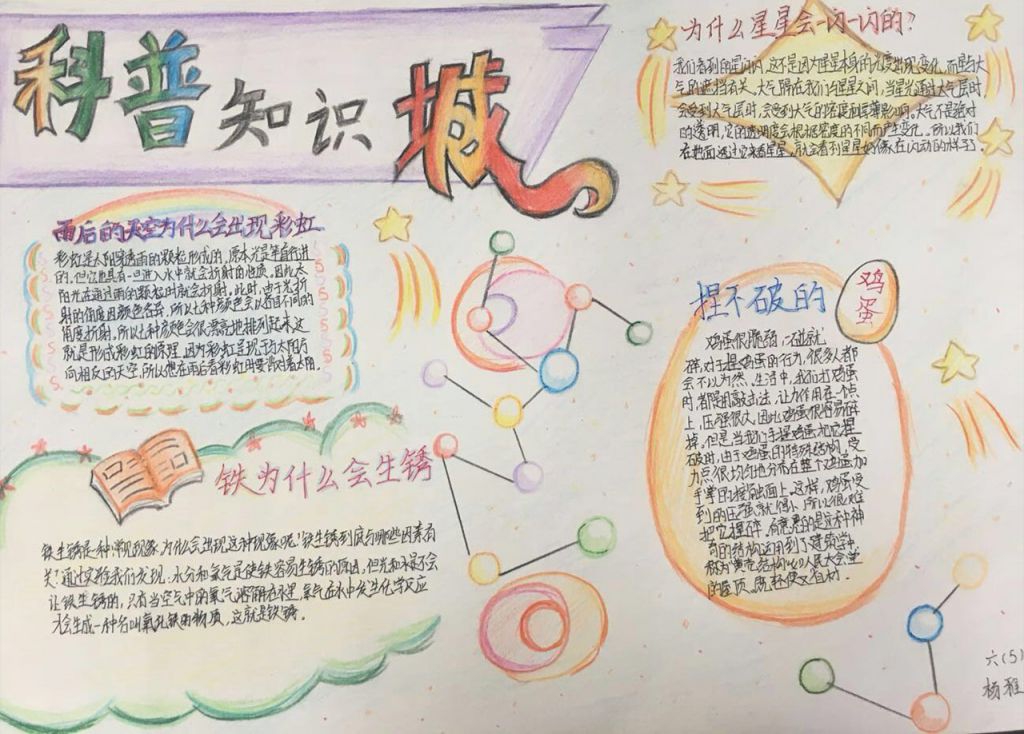 科普知识城
为什么星星会一闪一闪的?
我们看到的星闪闪,这不是因为星星本身的光度出现变化,而是与大
气的遮挡有关。大气隔在我们与星星之间,当星光通过大气层时
会受到大气层时,会受到大气的密度和厚薄影响。大气不是绝对
的透明,它的透明度会根据密度的不同而产生变化。所以我们
在地面透过它来看星星,就会看到星星好像在闪动的样子了
雨后的天空为什么会出现彩虹
彩虹是太阳穿透雨的颗粒形成的,原本光是笔直行进
的,但它也具有一旦进入水中就会折射的性质,因此太
阳光在通过雨的颗粒时就会折射。此时,由于光折
射的角度因颜色各异,所以七种颜色会以各自不同的
角度折射,所以七种颜色会很漂亮地排列起来,这
就是形成彩虹的原理,因为彩虹呈现于与太阳方
向相反的天空,所以想在雨后看彩虹
捏不破的
鸡蛋
鸡蛋很脆弱,一碰就
碎,对于捏鸡蛋的行为,很多人都
会不以为然,生活中,我们打鸡蛋
时,都是用敲击法,让力作用在一个点
上,压强很大,因此鸡蛋很容易碎
掉。但是,当我们手握鸡蛋把它握
破时,由于鸡蛋的特殊结构,受
力点很均匀地分布在整个鸡蛋加
手掌的接触面上。这样,鸡蛋受
到的压强就偏小,所以很难
把它捏碎。有意思的是这种神
奇的结构运用到了建筑学中,
称为"薄壳结构",如人民大会堂
的屋顶,既轻便又省材。
铁为什么会生锈
铁生锈是一种常见现象,为什么会出现这种现象呢?铁生锈到底与哪些因素有
关?通过实验我们发现,水分和氧气是使铁容易生锈的原因,但光和水是不会
让铁生锈的,只有当空气中的氧气溶解在水里,氧气在水中发生化学反应
才会生成一种名叫氧化铁的物质,这就是铁锈。
六(5)
杨雅